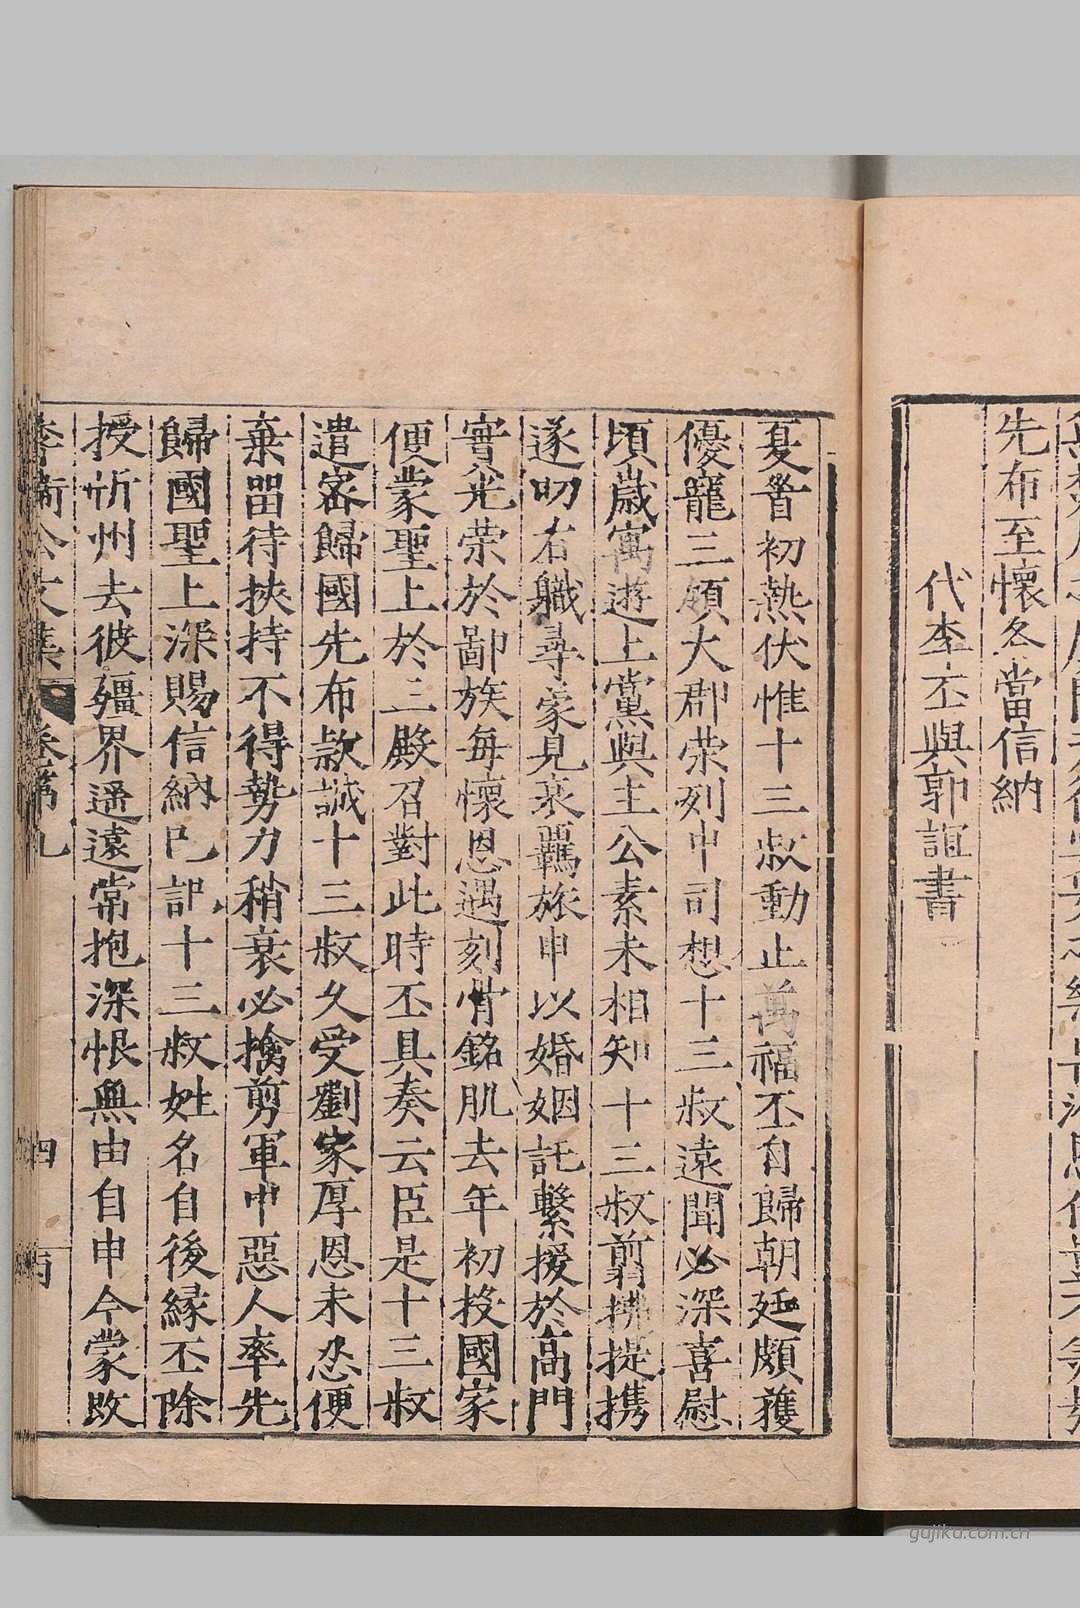 先布至懷冬當信納
代李丕與郭誼書
夏首初熱伏惟十三叔動止萬福丕自歸朝廷頗獲
優寵三領大郡荣列中司想十三叔遠聞必深喜慰
頃歲寓遊上黨與主公素未相知十三叔剪拂提携
遂叨右職尋蒙見哀羈旅申以婚姻託繫援於高門
實光荣於鄙族每懷恩遇刻骨銘肌去年初投國家
便蒙聖上於三殿召對此時丕具奏云臣是十三叔
遣密歸國先布款誠十三叔久受劉家厚恩未忍便
棄留待挾持不得勢力稍衰必擒剪軍中惡人率先
歸國聖上深賜信納已記十三叔姓名自後緣丕除
授忻州去彼疆界遥遠常抱深恨無由自申今蒙改
李衛公文集 卷第九 四
gujiku.com.cn